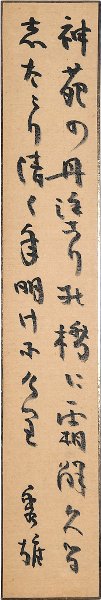 神苑の丹塗りの橋に霜解久る
志たゝり清く年明けにけり